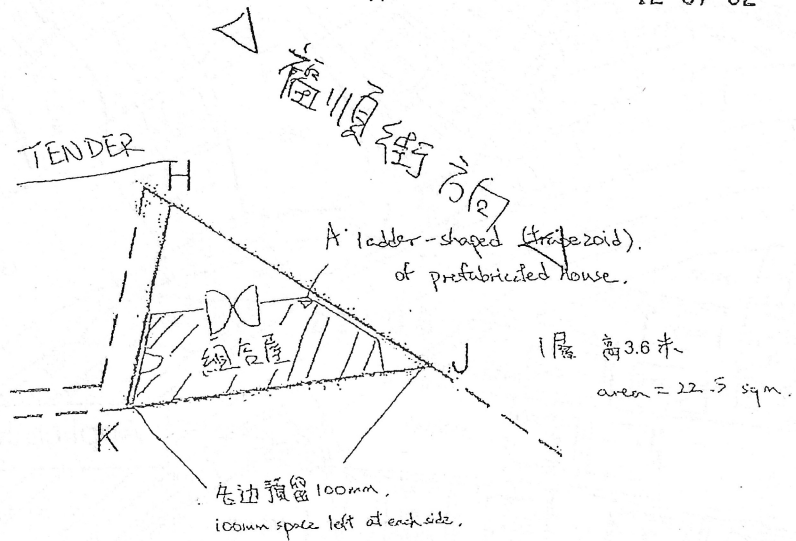 TENDER
H
順街方向
A ladder-shaped (trapezoid).
of prefabricated house.
組合屋
J
1層 高3.6米
area = 22.5 sqm.
K
每边預留100mm.
100mm space left at each side.